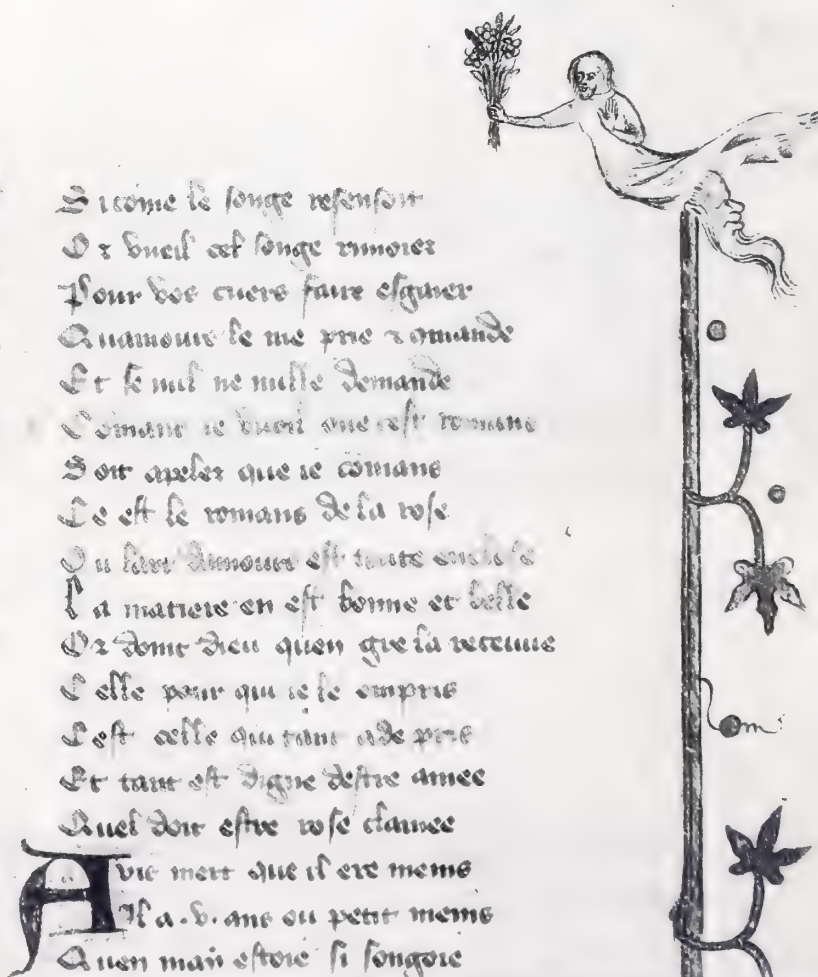 Si come le songe resensoit
Or vueil cel songe rimoier
Pour vos cuers faire esgaier
Quamours le me prie & comande
Et se nul ne nulle demande
Comant ie vueil que cest romans
Soit apeler que ie comans
Ce est le romans de la rose
Ou lart damours est toute enclose
La matiere en est bonne et belle
Or doint dieu quen gre la recoiue
Celle pour qui ie le empris
Cest celle qui tant a de pris
Et tant est digne destre amee
Quel doit estre rose clamee
Avis mert que il ere mems
Il a .v. ans ou petit meins
Quen may estoie si songoie